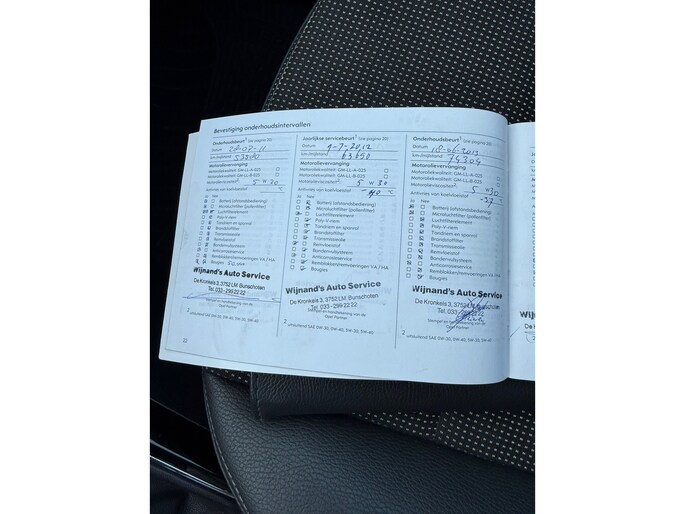 Bevestiging onderhoudsintervallen
Onderhoudsbeurt¹ (zie pagina 25)
Datum
km/mijlstand 53500
Motorolieverversing
Motoroliekwaliteit: GM-LL-A-025
Motoroliekwaliteit: GM-LL-B-025
Motorolieviscositeit² 5 W 30
Antivries van koelvloeistof °C
Ja Nee
Batterij (afstandsbediening)
Microluchtfilter (pollenfilter)
Luchtfilterelement
Poly-V-riem
Tandriem en spanrol
Brandstoffilter
Transmissieolie
Remvloeistof
Bandenvulsysteem
Anticorrosieservice
Remblokken/remvoeringen VA / HA
Bougies
Wijnand's Auto Service
De Kronkels 3, 3752 LM Bunschoten
Tel. 033 - 299 22 22
Stempel en handtekening van de
Opel Partner
² uitsluitend SAE 0W-30, 0W-40, 5W-30, 5W-40
20
Jaarlijkse servicebeurt¹ (zie pagina 25)
Datum 9-7-2012
km/mijlstand 63650
Motorolieverversing
Motoroliekwaliteit: GM-LL-A-025
Motoroliekwaliteit: GM-LL-B-025
Motorolieviscositeit² 5 W 30
Antivries van koelvloeistof -40 °C
Ja Nee
Batterij (afstandsbediening)
Microluchtfilter (pollenfilter)
Luchtfilterelement
Poly-V-riem
Tandriem en spanrol
Brandstoffilter
Transmissieolie
Remvloeistof
Bandenvulsysteem
Anticorrosieservice
Remblokken/remvoeringen VA / HA
Bougies
Wijnand's Auto Service
De Kronkels 3, 3752 LM Bunschoten
Tel. 033 - 299 22 22
Stempel en handtekening van de
Opel Partner
² uitsluitend SAE 0W-30, 0W-40, 5W-30, 5W-40
Onderhoudsbeurt¹ (zie pagina 25)
Datum
km/mijlstand 74304
Motorolieverversing
Motoroliekwaliteit: GM-LL-A-025
Motoroliekwaliteit: GM-LL-B-025
Motorolieviscositeit² 5 W 30
Antivries van koelvloeistof -32 °C
Ja Nee
Batterij (afstandsbediening)
Microluchtfilter (pollenfilter)
Luchtfilterelement
Poly-V-riem
Tandriem en spanrol
Brandstoffilter
Transmissieolie
Remvloeistof
Bandenvulsysteem
Anticorrosieservice
Remblokken/remvoeringen VA / HA
Bougies
Wijnand's Auto Service
De Kronkels 3, 3752 LM Bunschoten
Tel. 033 - 299 22 22
Stempel en handtekening van de
Opel Partner
² uitsluitend SAE 0W-30, 0W-40, 5W-30, 5W-40
Wijn
De K